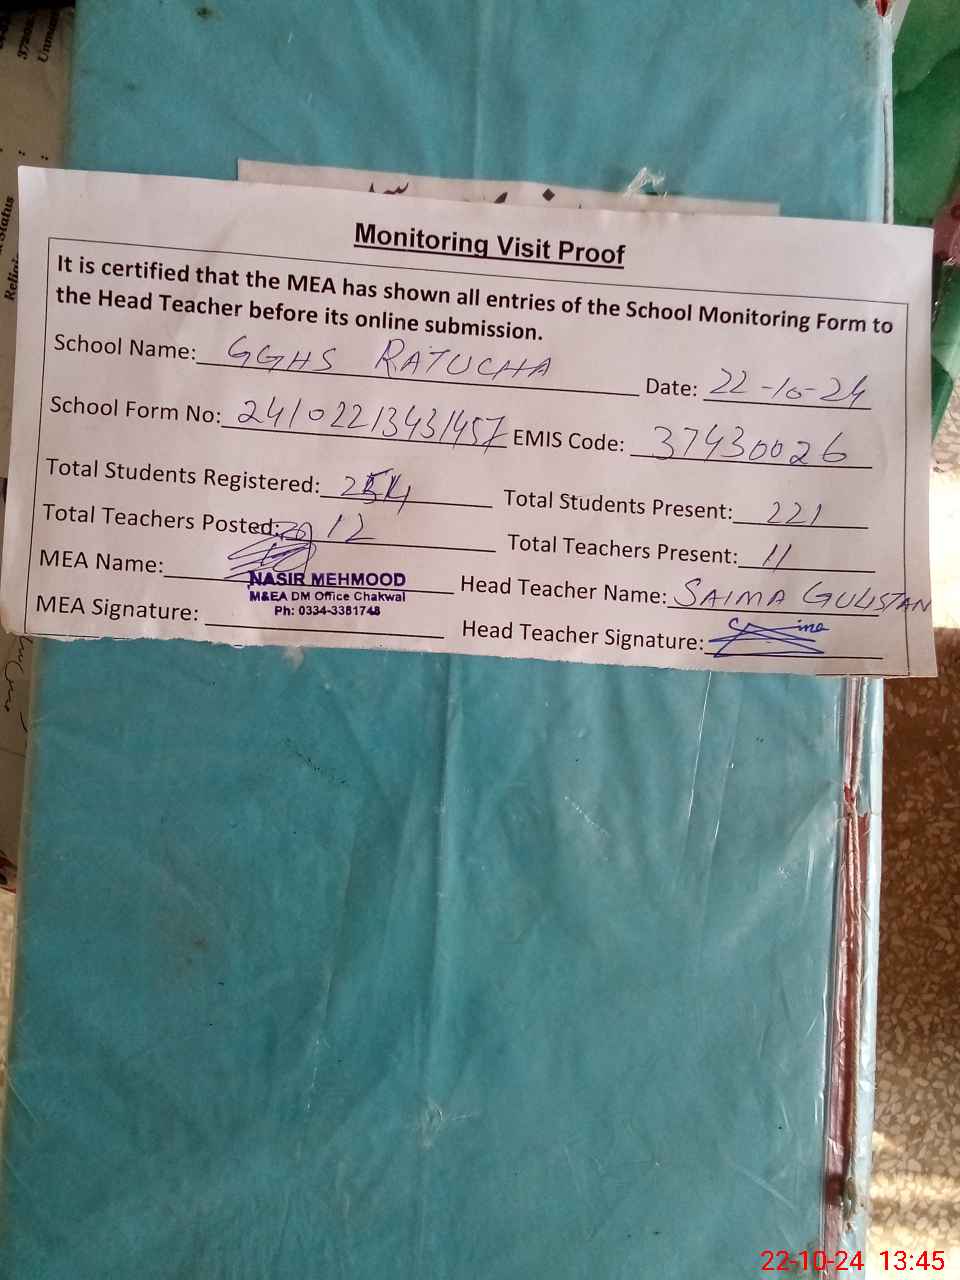 Monitoring Visit Proof
It is certified that the MEA has shown all entries of the School Monitoring Form to
the Head Teacher before its online submission.
School Name: GGHS RATUCHA Date: 22-10-24
School Form No: 24102213431457 EMIS Code: 37430026
Total Students Registered: 254 Total Students Present: 221
Total Teachers Posted: 12 Total Teachers Present: 11
MEA Name: NASIR MEHMOOD Head Teacher Name: SAIMA GULISTAN
M&EA DM Office Chakwal
Ph: 0334-3381748
MEA Signature: Head Teacher Signature:
Status
22-10-24 13:45